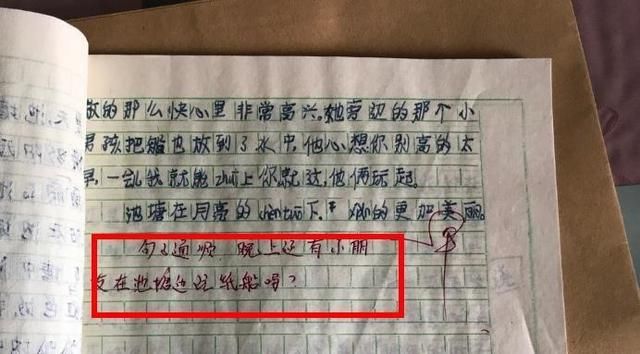 的那么快心里非常高兴。她旁边的那个小
男孩把船也放到了水中,他心想你别高的太
早,一会我就能zhui上你就过,他俩玩起。
池塘在月亮的chentuo下,的更加美丽。
句子通顺,晚上还有小朋
友在池塘边玩纸船吗?